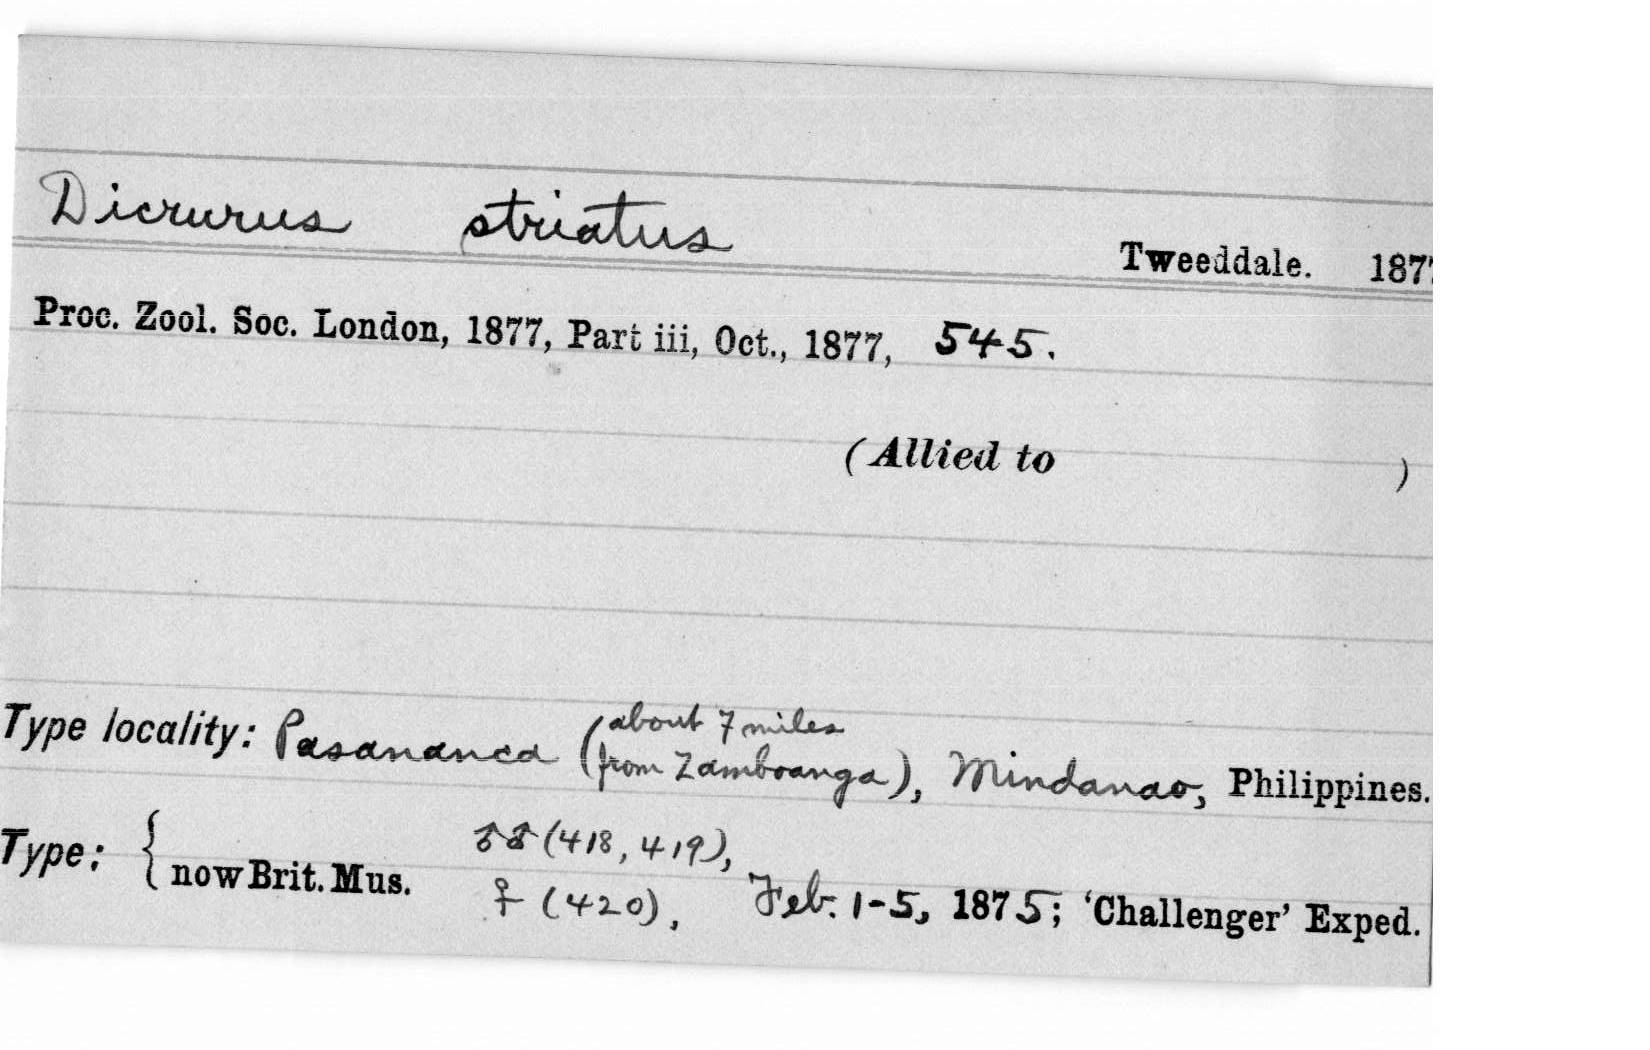 Dicrurus striatus Tweeddale. 187
Proc. Zool. Soc. London, 1877, Part iii, Oct., 1877, 545.
(Allied to )
Type locality: Pasananca (about 7 miles
from Zamboanga), Mindanao, Philippines.
♂♂ (418, 419),
Type: { now Brit. Mus. ♀ (420), Feb. 1-5, 1875; 'Challenger' Exped.